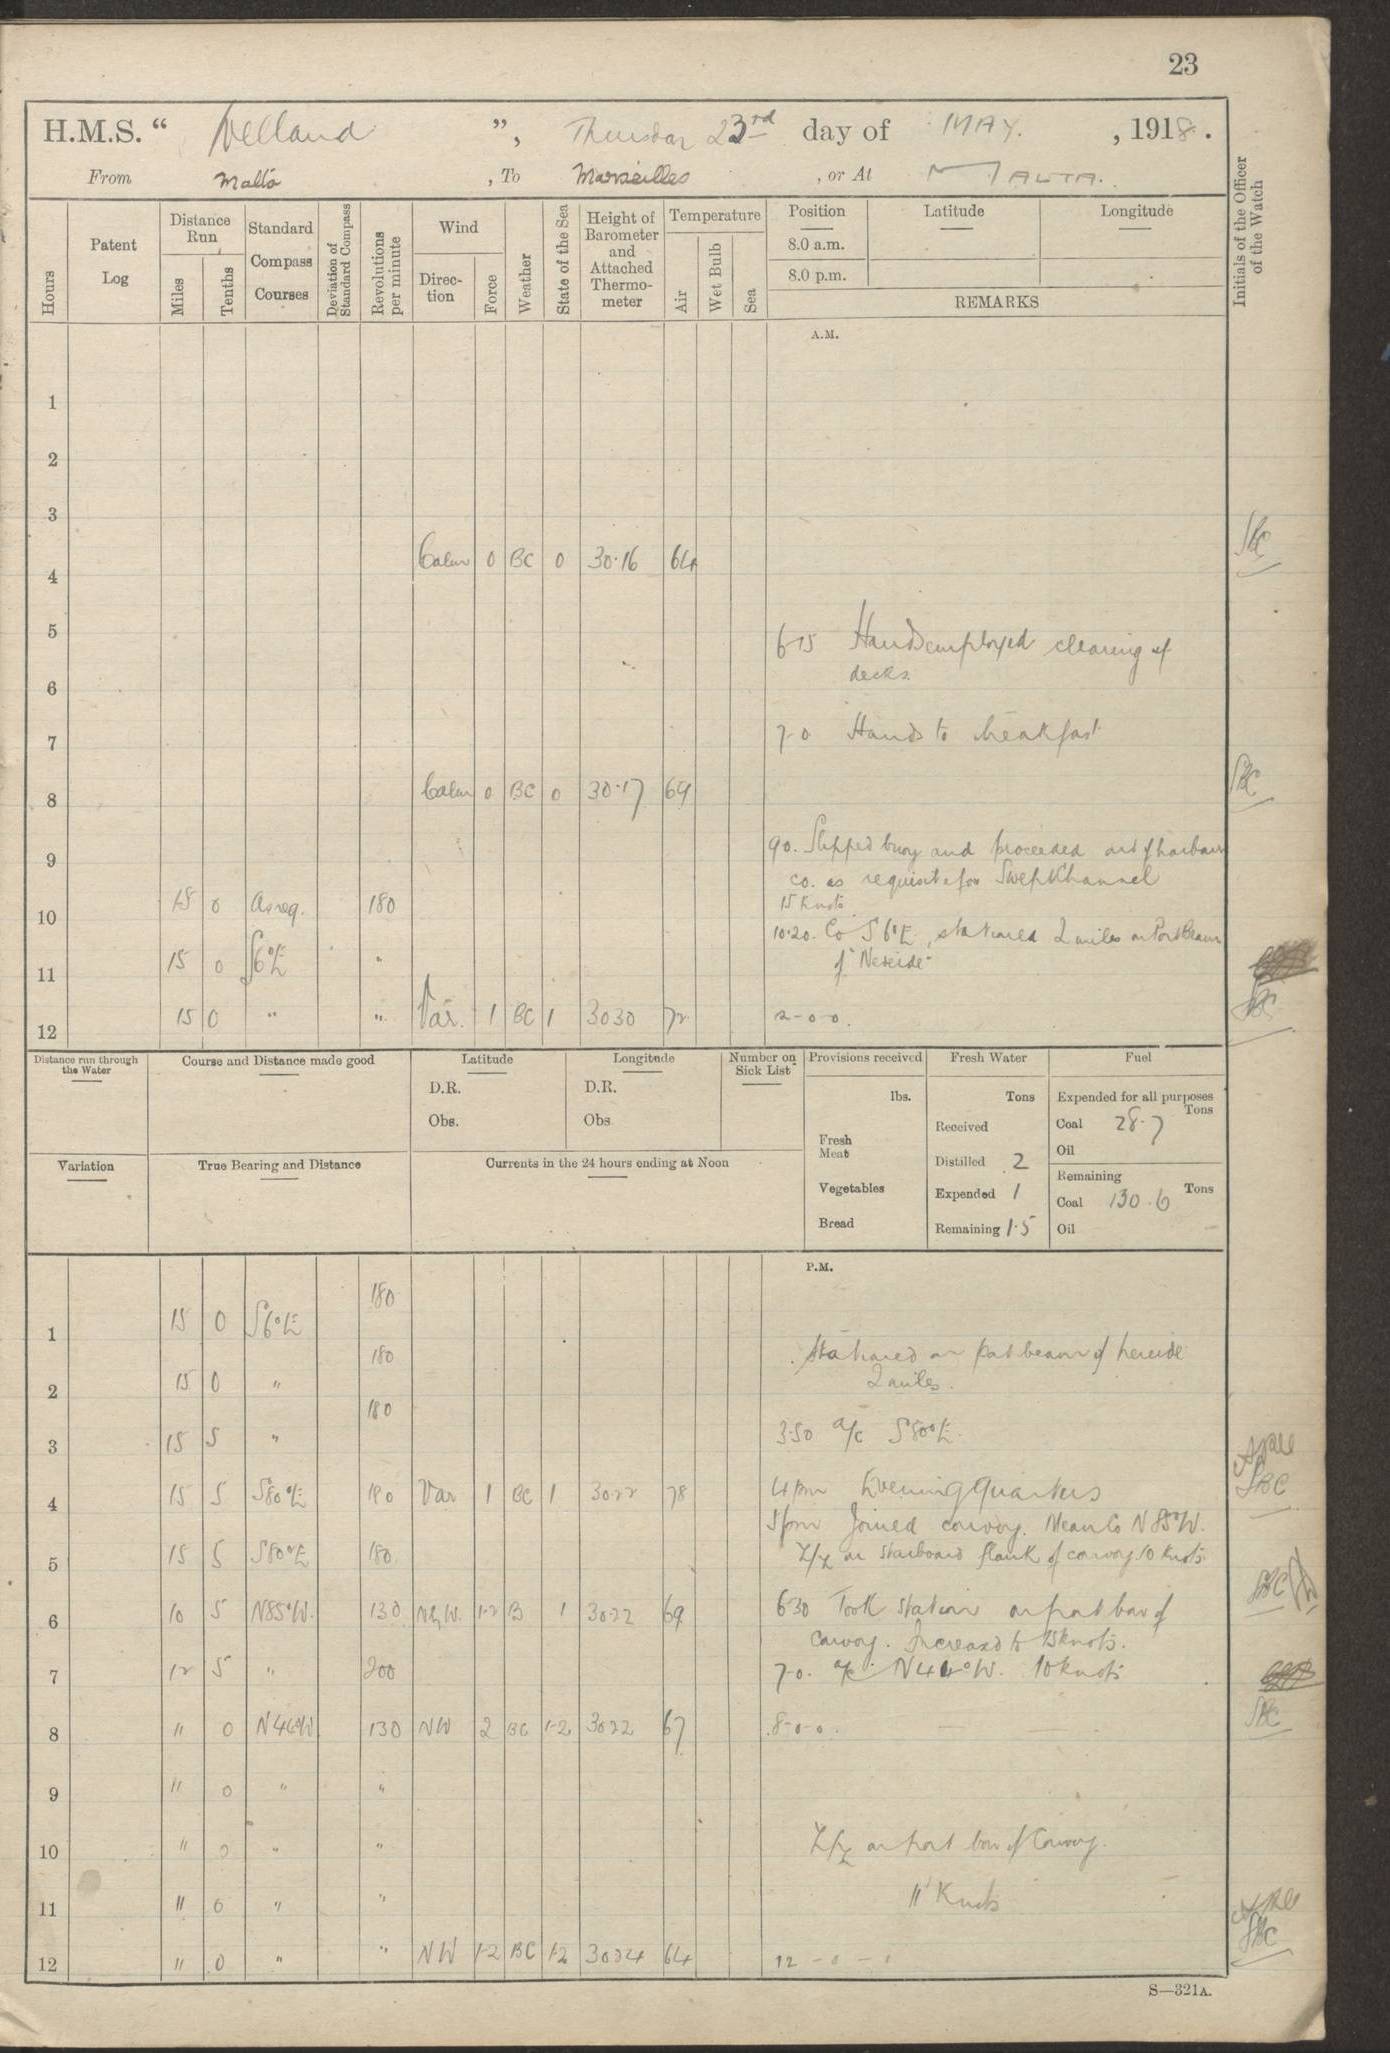 23
H.M.S. " Welland ", Thursday 23rd day of MAY. , 1918.
From Malta , To Marseilles , or At MALTA.
Hours
Patent Log
Distance Run
Miles
Tenths
Standard Compass Courses
Deviation of Standard Compass
Revolutions per minute
Wind
Direction
Force
Weather
State of the Sea
Height of Barometer and Attached Thermometer
Temperature
Air
Wet Bulb
Sea
Position Latitude Longitude
8.0 a.m.
8.0 p.m.
REMARKS
Initials of the Officer of the Watch
A.M.
1
2
3
4 Calm 0 BC 0 30·16 64 SBC
5 6-15 Hands employed clearing of
decks.
6
7 7-0 Hands to breakfast
8 Calm 0 BC 0 30·17 69 SBC
9 9 0. Slipped buoy and proceeded out of harbour
co. as requisite for Swept Channel
15 Knots
10 15 0 As req. 180
10·20. Co S 6°E, stationed 2 miles on Port Beam
of "Nereide"
11 15 0 S6°E "
12 15 0 " " Var. 1 BC 1 3030 72 SBC
Distance run through the Water
Course and Distance made good
Latitude
D.R.
Obs.
Longitude
D.R.
Obs
Number on Sick List
Provisions received
lbs.
Fresh Meat
Vegetables
Bread
Fresh Water
Tons
Received
Distilled 2
Expended 1
Remaining 1·5
Fuel
Expended for all purposes
Tons
Coal 28·7
Oil
Remaining
Coal 130·6 Tons
Oil
Variation
True Bearing and Distance
Currents in the 24 hours ending at Noon
P.M.
1 15 0 S6°E 180
Stationed on port beam of Nereide
2 miles.
2 15 0 " 180
3 15 5 " 180 3·50 a/c S80°E.
4 15 5 S80°E 180 Var 1 BC 1 3022 78 4 pm Evening Quarters SBC
5 pm Joined convoy. Mean Co N 85°W.
Z/z on starboard flank of convoy 10 knots
5 15 5 S80°E 180
6 10 5 N85°W. 130 NbyW. 1-2 B 1 3022 69 6·30 Took station on port bow of SBC
convoy. Increased to 15 knots.
7 12 5 " 200 7-0. a/c N44°W. 10 knots
8 " 0 N44°W 130 NW 2 BC 1-2 3022 67 8-0-0. SBC
9 " 0 " "
10 " 0 " " Z/z on port bow of Convoy.
11 " 0 " " 11 Knots
12 " 0 " " NW 1-2 BC 1-2 3024 64 12-0-0 SBC
S—321A.